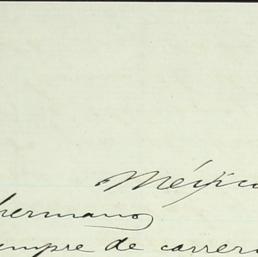 Méxic
hermano
empre de carrer